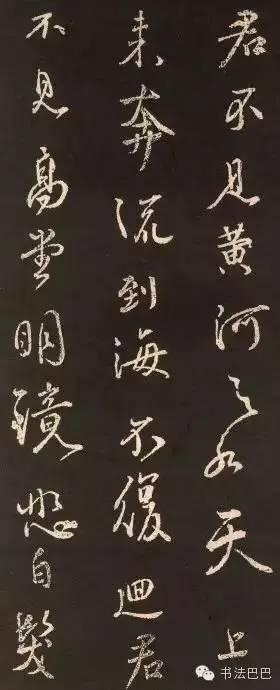 君不见黄河之水天上
来奔流到海不復迴君
不见高堂明镜悲白髮
书法巴巴